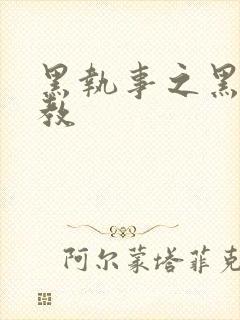 黑執事之黑
教
阿尔蒙塔菲克